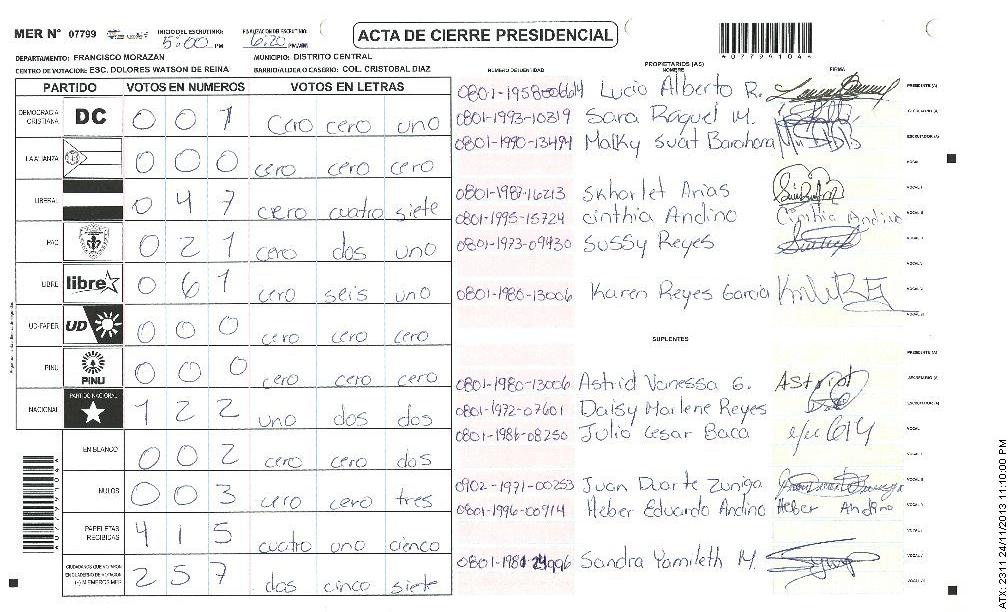 MER N° 07799
INICIO DEL ESCRUTINIO: 5:00 PM
FINALIZACION DE ESCRUTINIO: 6:20 PM
ACTA DE CIERRE PRESIDENCIAL
4077991044
DEPARTAMENTO: FRANCISCO MORAZAN
MUNICIPIO: DISTRITO CENTRAL
CENTRO DE VOTACION: ESC. DOLORES WATSON DE REINA
BARRIO/ALDEA O CASERIO: COL. CRISTOBAL DIAZ
PARTIDO VOTOS EN NUMEROS VOTOS EN LETRAS
DEMOCRACIA CRISTIANA DC 0 0 1 Cero cero uno
LA ALIANZA 0 0 0 cero cero cero
LIBERAL 0 4 7 cero cuatro siete
PAC 0 2 1 cero dos uno
LIBRE libre 0 6 1 cero seis uno
UD-FAPER UD 0 0 0 cero cero cero
PINU PINU 0 0 0 cero cero cero
NACIONAL PARTIDO NACIONAL 1 2 2 uno dos dos
EN BLANCO 0 0 2 cero cero dos
NULOS 0 0 3 cero cero tres
PAPELETAS RECIBIDAS 4 1 5 cuatro uno cienco
2 5 7 dos cinco siete
NUMERO DE IDENTIDAD PROPIETARIOS (AS) NOMBRE FIRMA
Lucio Alberto R. PRESIDENTE (A)
0801-1993-10319 Sara Raquel M. SECRETARIO (A)
0801-1990-13494 Malky Suat Barahona ESCRUTADOR (A)
VOCAL I
0801-1987-16213 Skharlet Arias
0801-1995-15724 Cinthia Andino Cinthia Andino
0801-1973-09430 Sussy Reyes
0801-1980-13006 Karen Reyes Garcia
SUPLENTES
PRESIDENTE (A)
0801-1980-13006 Astrid Vanessa G. Astript SECRETARIO (A)
0801-1972-07601 Daisy Marlene Reyes ESCRUTADOR (A)
0801-1986-08250 Julio Cesar Baca
0902-1971-00253 Juan Duarte Zuniga
0801-1996-00914 Heber Eduardo Andino Heber Andino
Sandra Yamileth M.
4077991044
ATX: 2311 24/11/2013 11:10:00 PM